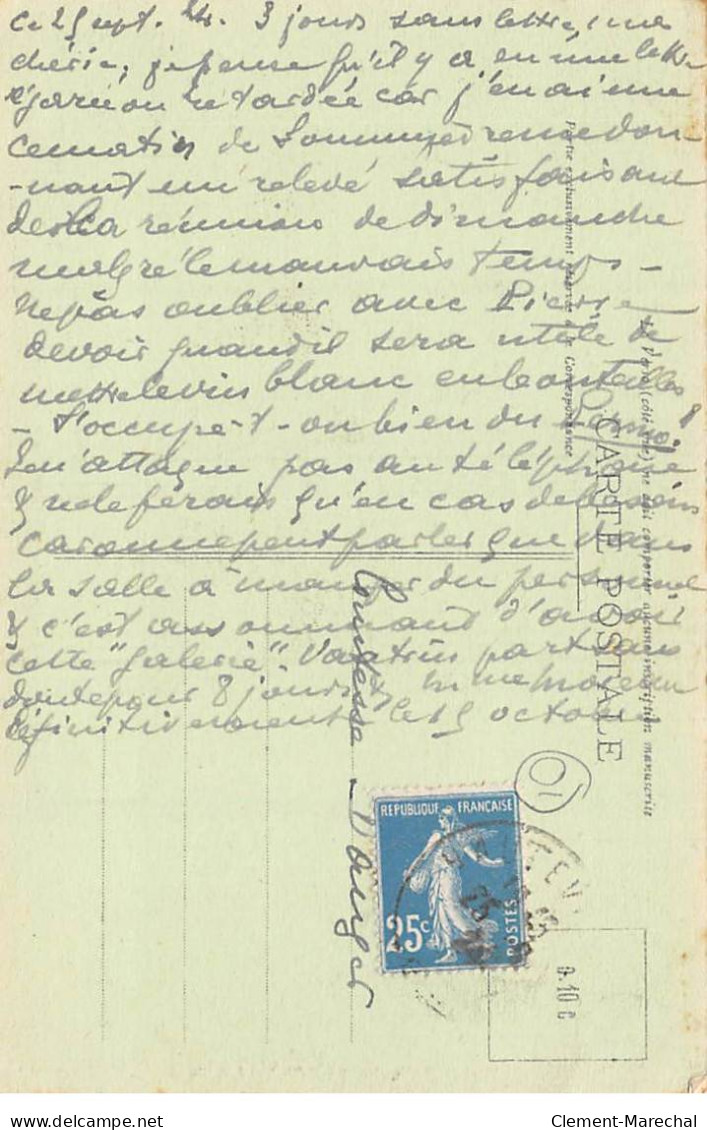 Ce 25 sept. 24. 3 jours sans lettre, ma
chérie, je pense qu'il y a eu une lettre
égarée ou retardée car j'en ai une
ce matin de me don-
-nant un relevé satisfaisant
de la réunion de dimanche
malgré le mauvais temps -
Ne pas oublier avec Pierre
de voir quand il sera utile de
mettre le vin blanc en bouteilles
- S'occupe-t-on bien du
Je n'attaque pas au téléphone
& ne le ferais qu'en cas de besoin
car on ne peut parler que dans
la salle à manger du personnel
& c'est assommant d'avoir
cette "galerie". partirais
doute pour 8 jours & Mme Moreau
définitivement le 15 octobre
Comtesse Dauger
CARTE POSTALE
Partie exclusivement réservée à la Correspondance
Le Verso (côté vue) ne doit comporter aucune inscription manuscrite
REPUBLIQUE FRANÇAISE
25c
POSTES
0.10 c
Clement-Marechal